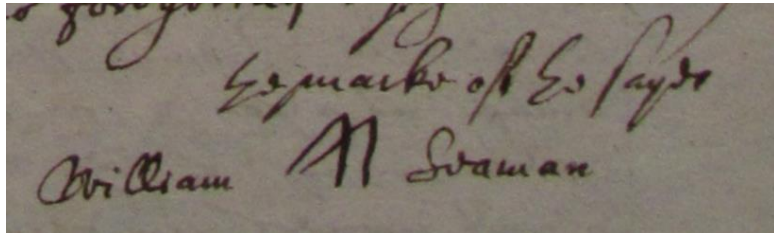 the marke of the sayde
William Seaman